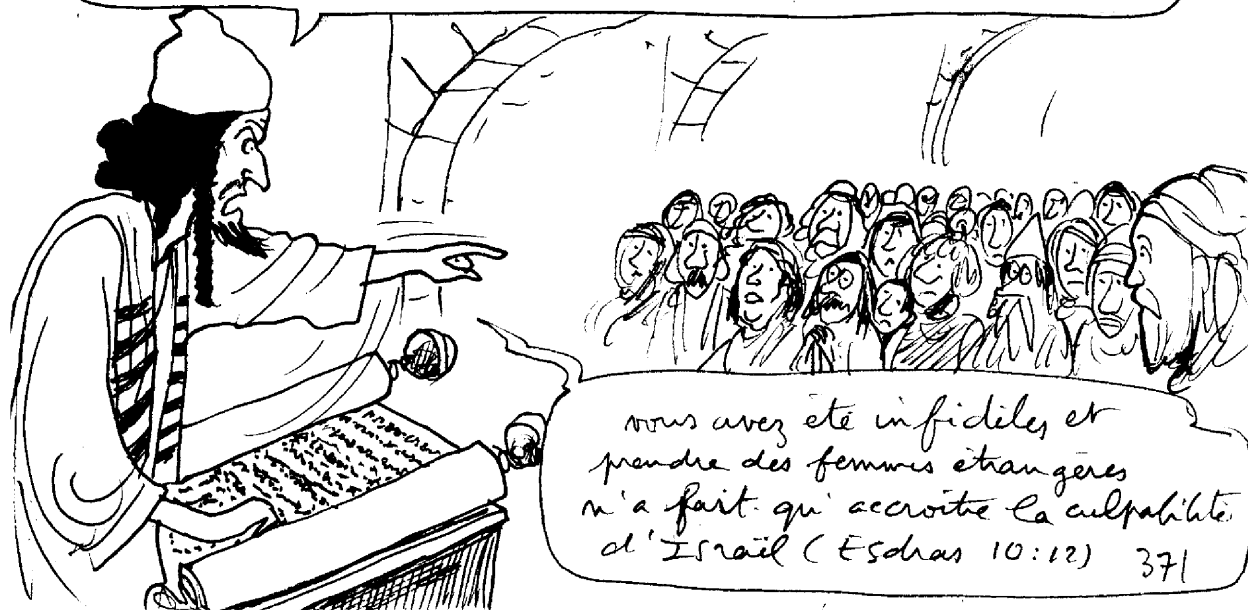 vous avez été infidèles et
prendre des femmes étrangères
n'a fait qu'accroître la culpabilité
d'Israël (Esdras 10:12) 371